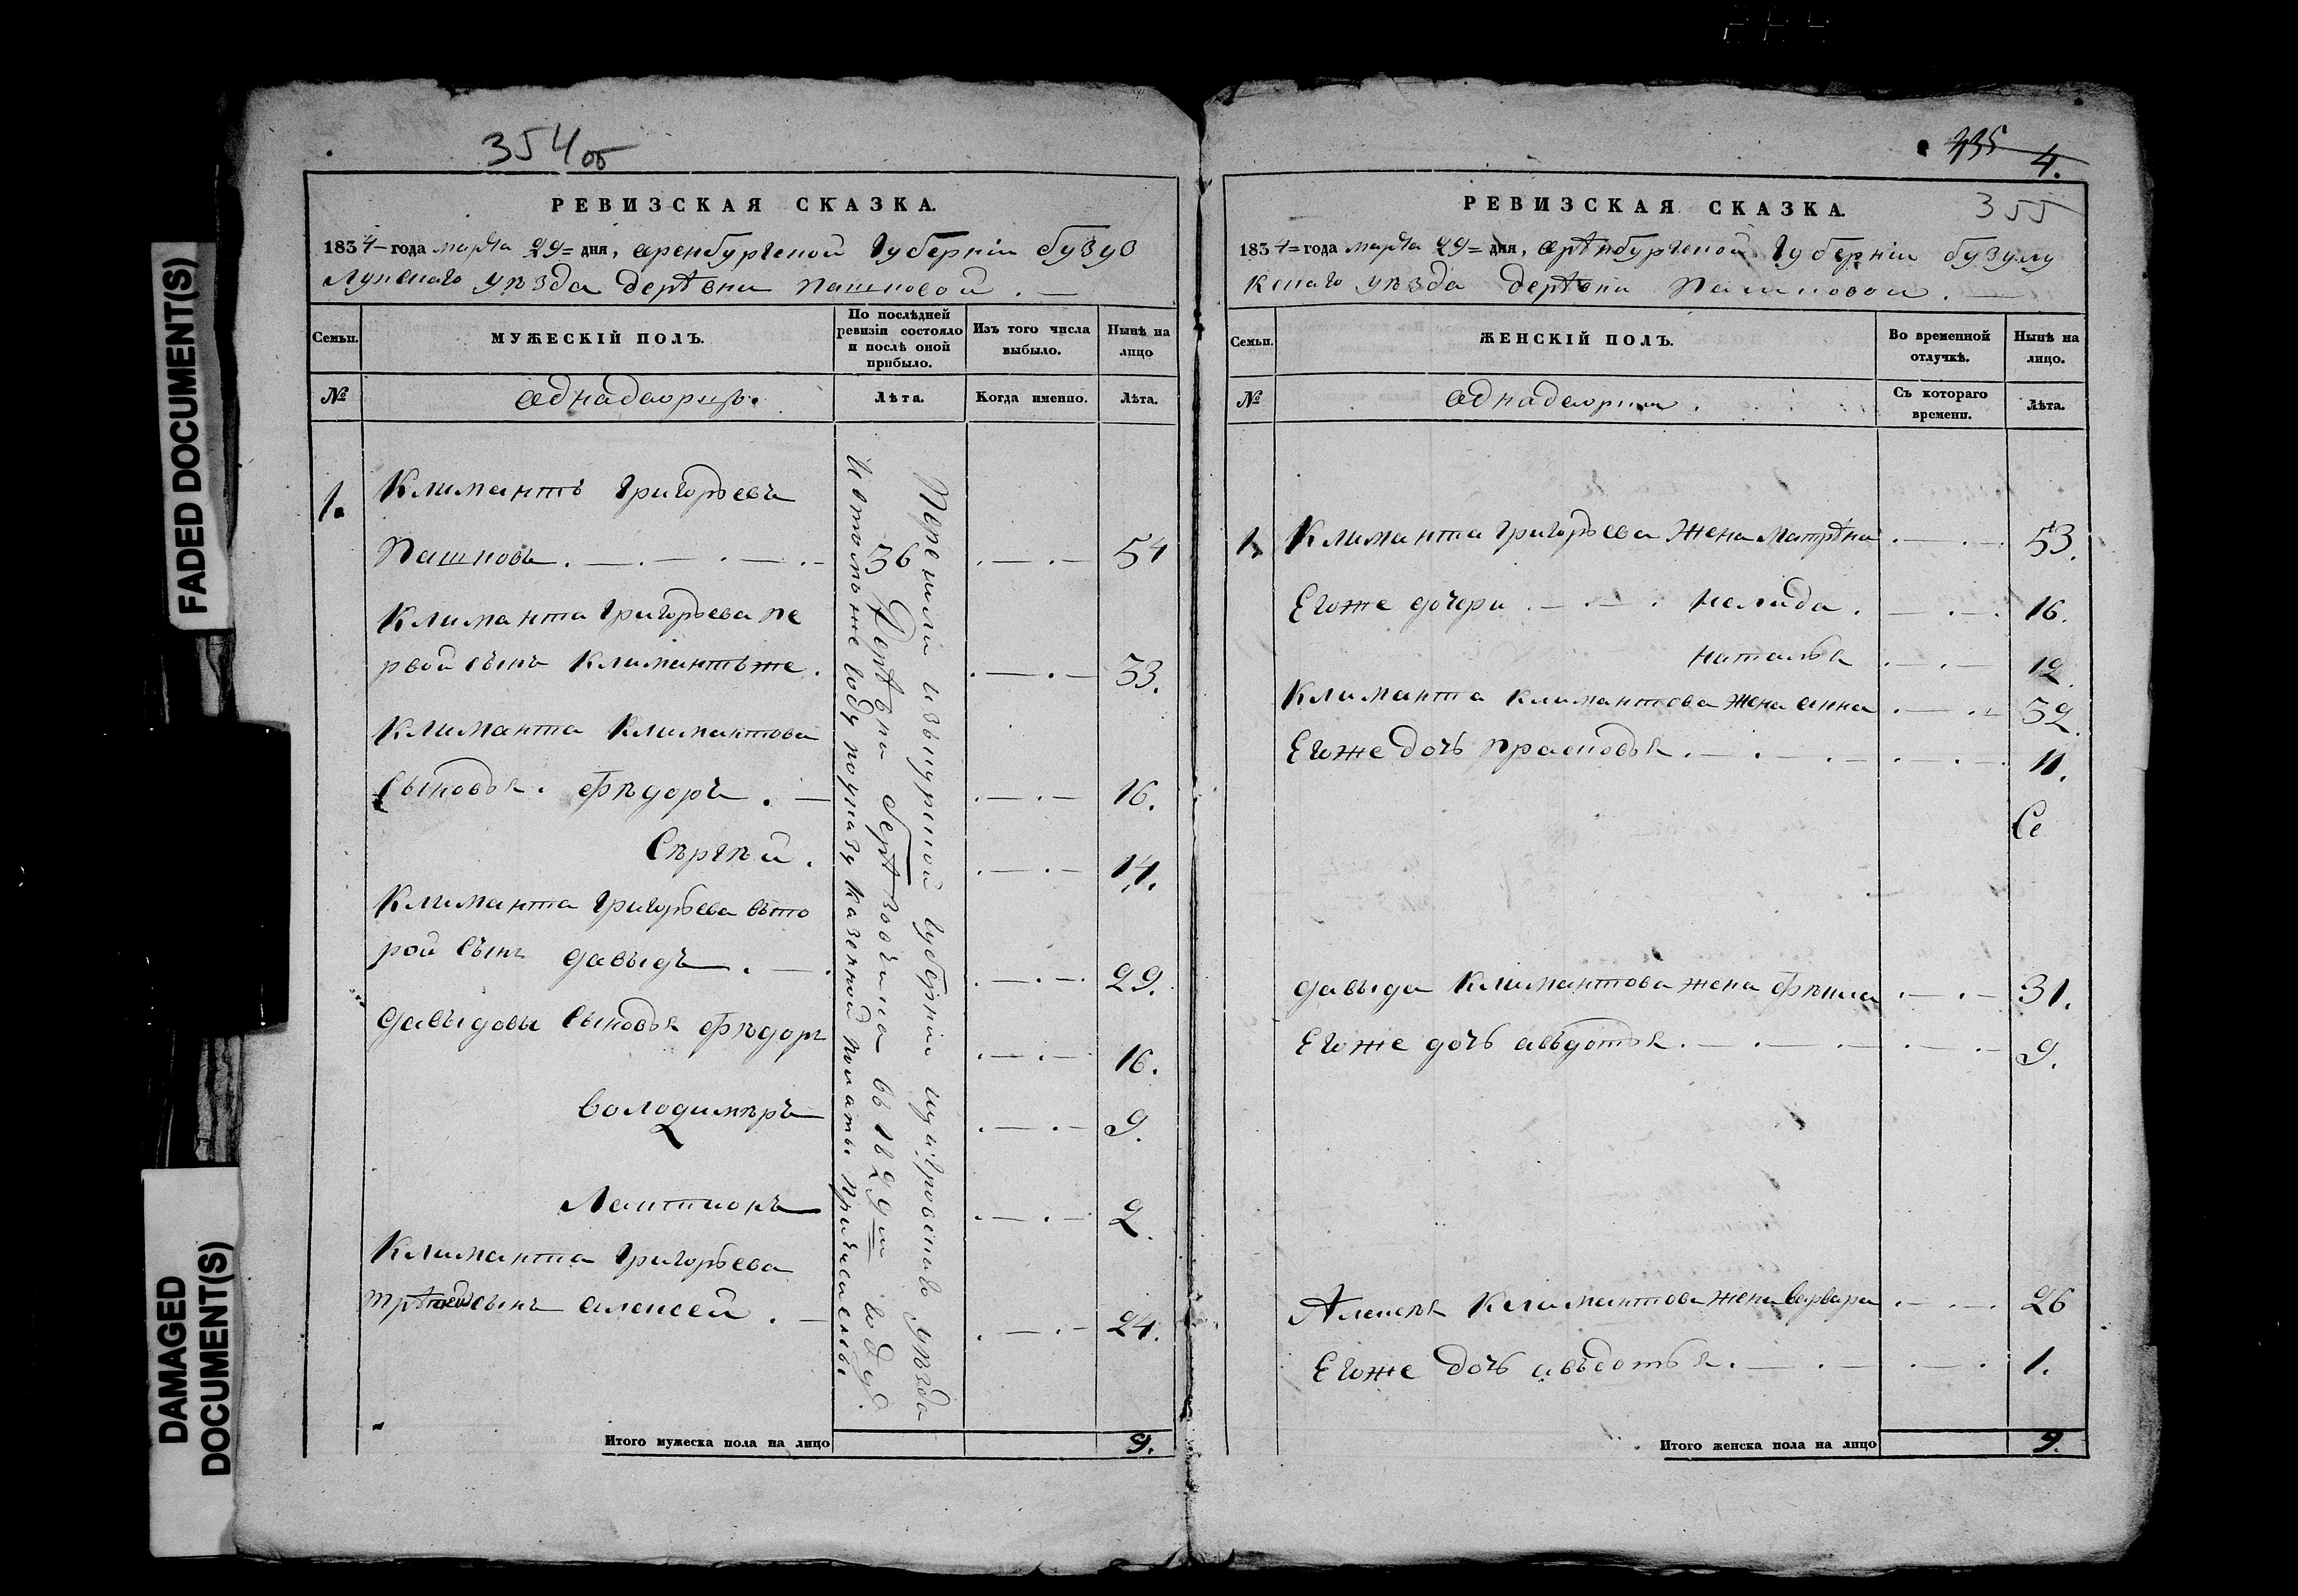 FADED DOCUMENT(S)
DAMAGED
DOCUMENT(S)
354 об
РЕВИЗСКАЯ СКАЗКА.
1834 года марта 29 дня, аренбургской губерніи бузу
лунскаго уѣзда деревни пашковой.
Семьи.
МУЖЕСКІЙ ПОЛЪ.
По послѣдней
ревизіи состояло
и послѣ оной
прибыло.
Изъ того числа
выбыло.
Нынѣ на
лицо
№
аднадворцъ.
Лѣта.
Когда именно.
Лѣта.
1. Климантъ Григорьевъ
Пашковъ 36 54
Климанта Григорьева пе
рвой сынъ Климантъ же 33.
Климанта Климантова
Сыновья. Фѣдоръ 16.
Сѣргѣй. 14.
Климанта Григорьева въто
рой сынъ давыдъ 29.
давыдовы сыновья фѣдоръ 16.
володимѣръ 9.
2.
Климанта Григорьева
сынъ алексей 24.
Перешли изъ курской губерніи щигровскаго уѣзда
в 1829м году.
и потомъ же году по указу казенной полаты причислены
Итого мужеска пола на лицо 9.
435 4.
355
РЕВИЗСКАЯ СКАЗКА.
1834 года марта 29 дня, аренбургской губерніи бузулу
кскаго уѣзда деревни пашковой.
Семьи.
ЖЕНСКІЙ ПОЛЪ.
Во временной
отлучкѣ.
Нынѣ на
лицо.
№
аднадворцы.
Съ котораго
времени.
Лѣта.
1. Климанта Григорьева жена матрена 53.
Егоже дочери 16.
наталья 12
Климанта климантова жена анна 32
Егоже дочь прасковья 11.
Се
давыда Климантова жена фѣкла 31.
Егоже дочь авъдотья 9.
Алексѣя Климантова жена варвара 26
Егоже дочь авъдотья 1.
Итого женска пола на лицо 9.